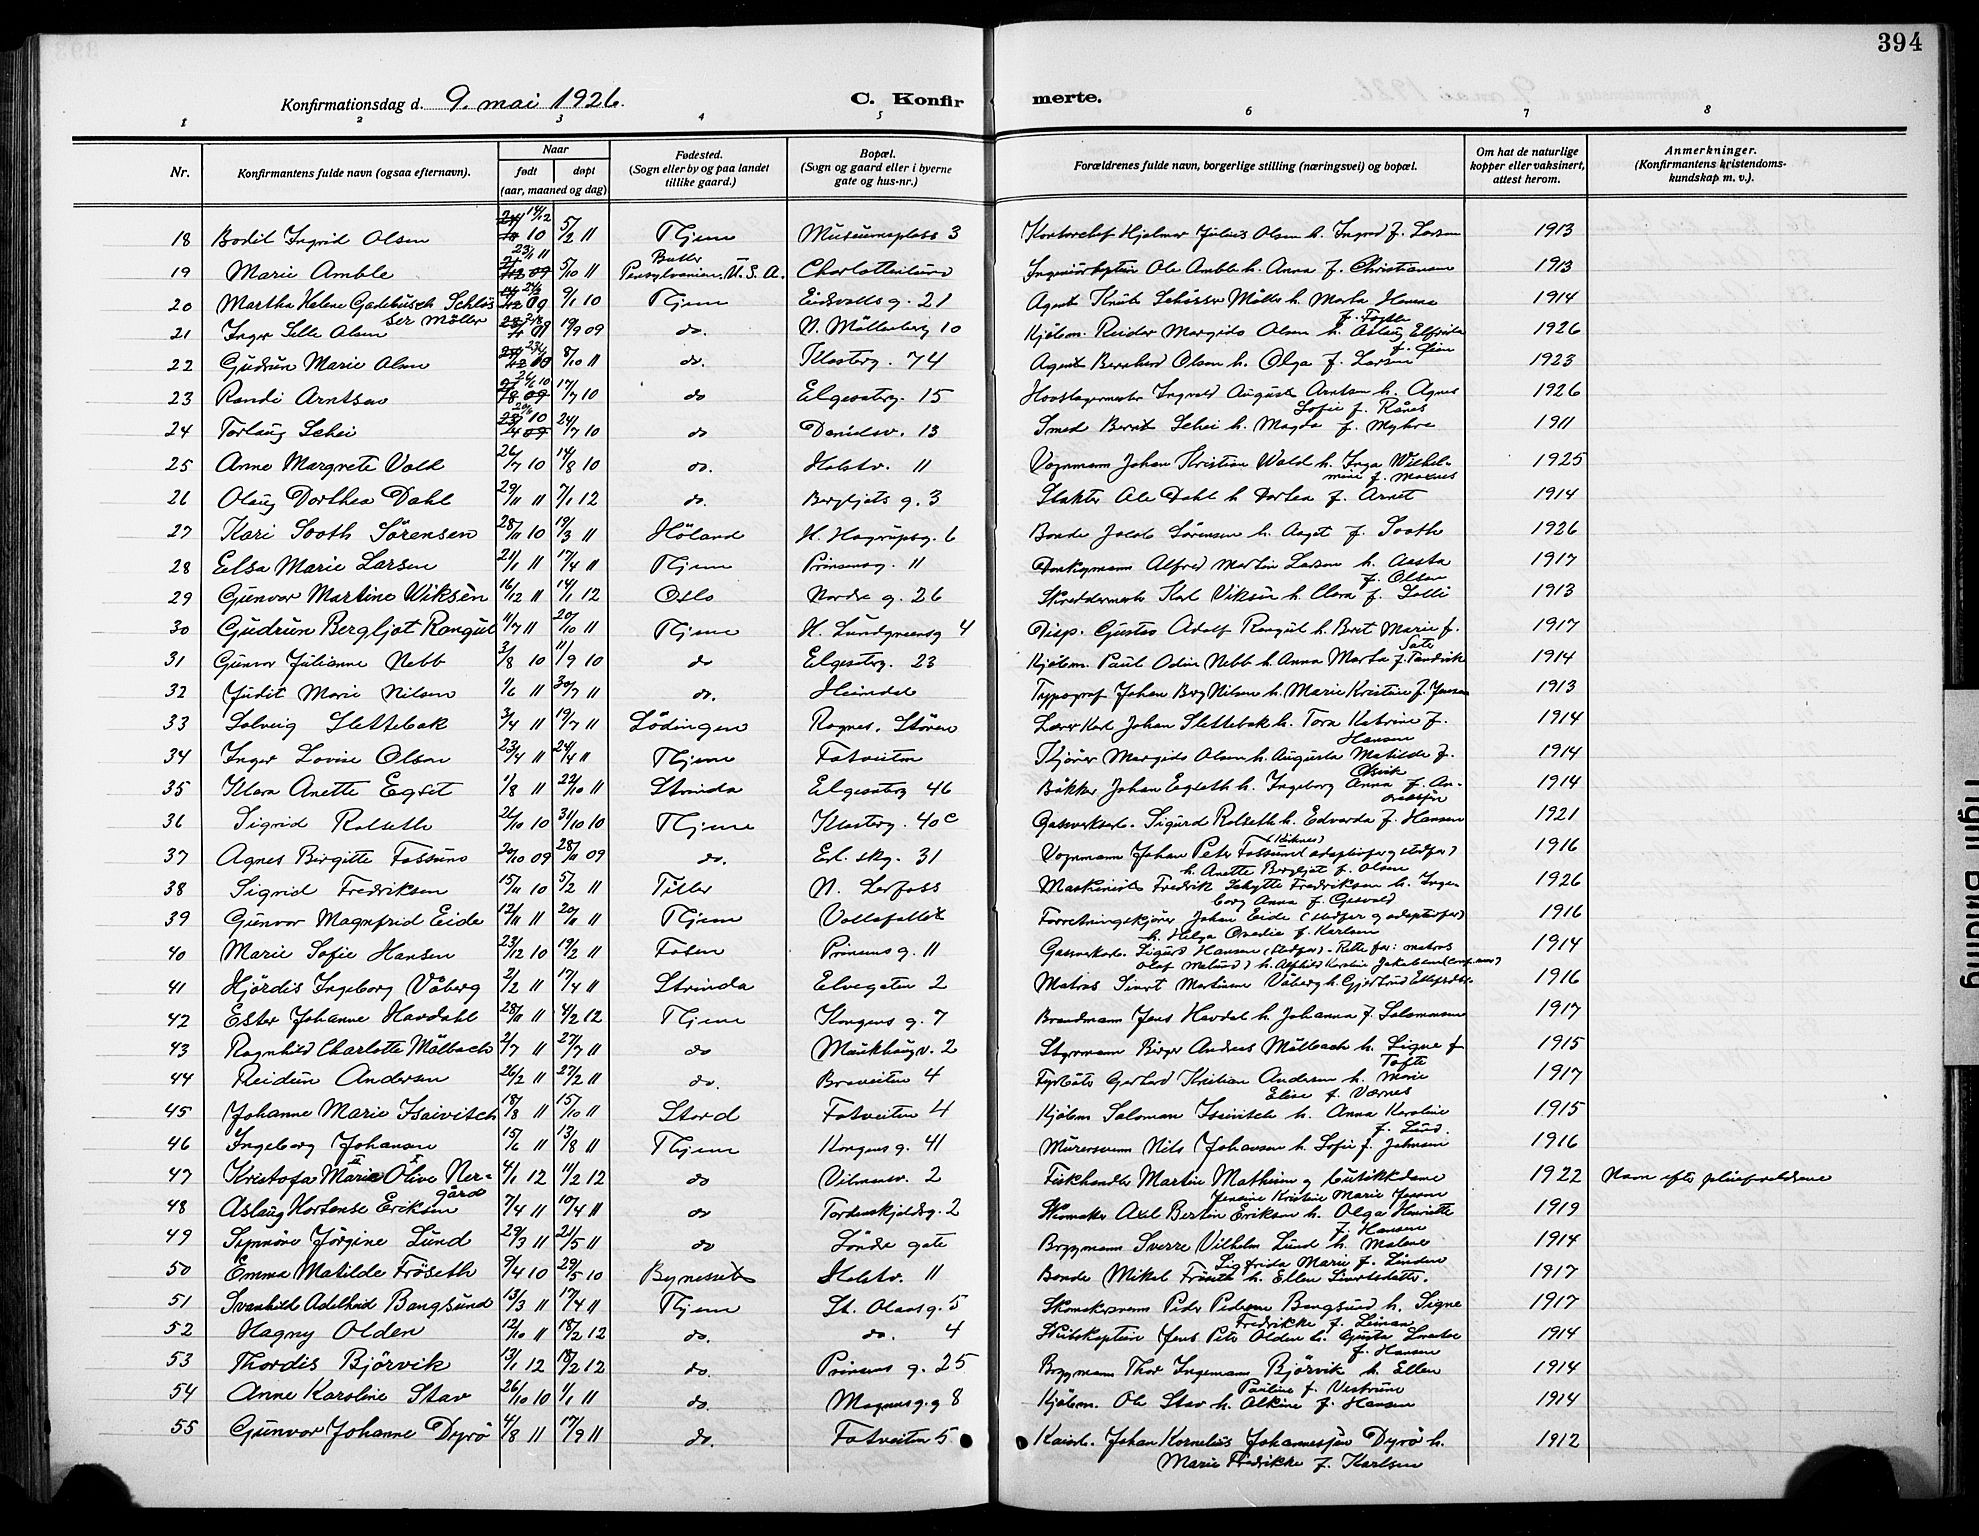 394
Konfirmationsdag d. 9. mai 1926.
C. Konfirmerte.
1 2 3 4 5 6 7 8
Nr.
Konfirmantens fulde navn (ogsaa efternavn).
Naar
født
døpt
(aar, maaned og dag)
Fødested.
(Sogn eller by og paa landet
tillike gaard.)
Bopæl.
(Sogn og gaard eller i byerne
gate og hus-nr.)
Forældrenes fulde navn, borgerlige stilling (næringsvei) og bopæl.
Om hat de naturlige
kopper eller vaksinert,
attest herom.
Anmerkninger.
(Konfirmantens kristendoms-
kundskap m. v.).
18 Bodil Ingrid Olsen 14/12 10 5/2 11 Thjem Museumsplass 3 Kontorchef Hjalmar Julius Olsen h. Ingrid f. Larsen 1913
19 Marie Amble 23/1 11 5/10 11 Butler Pensylvanien, U.S.A. Charlottenlund Ole Amble h. Anna f. Christiansen 1913
20 Martha Helene Gadebusch 9/1 10 Thjem Eidsvolls g. 21 Agent Knut Møller h. Marta Hanna 1914
ser Møller
21 Inger Olsen 19/9 09 do. N. Möllenberg 10 Kjølem. Reidar Margido Olsen h. Aslaug Elfrida 1926
22 Gudrun Marie Olsen 8/10 11 do. Klosterg. 74 Agent Bernhard Olsen h. Olga f. Larsen 1923
23 Randi Arntsen 17/7 10 do Elgesetterg. 15 Hovslagermester Ingvald August Arntsen h. Agnes 1926
Sofie f. Rånes
24 Torlaug Schei 24/7 10 do Danielsv. 13 Smed Bernt Schei h. Magda f. Myhre 1911
25 Anne Margrete Vold 26/7 10 14/8 10 do. Holstv. 11 Vognmann Johan Kristian Wold h. Inga Wilhel- 1925
mine f. Moxnes
26 Olaug Dorthea Dahl 29/11 11 7/1 12 do. Bergljots g. 3 Slakter Ole Dahl h. Dortea f. Arnet 1914
27 Kari Sooth Sörensen 28/11 10 19/3 11 Höland H. Hagrupsg. 6 Bonde Jacob Sörensen h. Aaget f. Sooth 1926
28 Elsa Marie Larsen 21/1 11 17/4 11 Thjem Prinsensg. 11 Donkeymann Alfred Martin Larsen h. Aasta 1917
f. Olsen
29 Gunvor Martine Viksèn 16/12 11 14/1 12 Oslo Nordre g. 26 Skreddermester Karl Viksèn h. Clara f. Solli 1913
30 Gudrun Bergljot Rangul 11/7 11 20/10 11 Thjem H. Lundgreensg 4 Disp. Gustav Adolf Rangul h. Bret Marie f. 1917
31 Gunvor Julianne Nebb 3/8 10 11/9 10 do Elgesetterg. 23 Kjølem. Paul Odin Nebb h. Anna Marta f. Tandvik 1914
32 Judit Marie Nilsen 1/6 11 30/7 11 do. Heimdal Typograf Johan Berg Nilsen h. Marie Kristine f. Jensen 1913
33 Solveig Slettebak 3/4 11 19/7 11 Lödingen Rognes, Stören Lærer Karl Johan Slettebak h. Tora Katrine f. 1914
Hansen
34 Inger Lovise Olsen 23/4 11 24/4 11 Thjem Fotveiten Kjører Margido Olsen h. Augusta Matilde f. 1914
35 Klara Anette Egset 1/8 11 22/10 11 Strinda Elgesetterg 46 Bakker Johan Egseth h. Ingeborg Anna f. An- 1914
36 Sigrid Rolseth 26/10 10 31/10 10 Thjem Klosterg. 40 c Gassverksarb. Sigurd Rolseth h. Edvarda f. Hansen 1921
37 Agnes Birgitte Fossund 20/10 09 28/11 09 do. Erl. skg. 31 Vognmann Johan Peter Fossund (adoptivfar og stedfar) 1916
h. Anette Bergljot f. Olsen
38 Sigrid Fredriksen 15/11 10 5/2 11 Tiller N. Lerfoss Maskinist Fredrik Schytte Fredriksen h. Inge- 1926
borg Anna f. Gresvold
39 Gunvor Magnfrid Eide 12/11 11 20/11 11 Thjem Vollafallet Forretningskjører Johan Eide (stedfar og adoptivfar) 1916
h. Helga Ovedie f. Karlsen
40 Marie Sofie Hansen 23/12 10 19/2 11 Fosen Prinsens g. 11 Gassverksarb. Sigurd Hansen (stedfar) - Rette far: matros 1914
41 Hjördis Ingeborg Våberg 2/2 11 17/4 11 Strinda Elvegaten 2 Matros Sivert Martinsen Våberg h. Gjertrud 1916
42 Ester Johanne Havdahl 28/11 11 4/2 12 Thjem Kongens g. 7 Brandmann Jens Havdal h. Johanna f. Salomonsen 1917
43 Ragnhild Charlotte Målbach 2/7 11 27/7 11 do Maukhaugv. 2 Styrmann Birger Andreas Målbach h. Signe f 1915
Tofte
44 Reidun Andersen 26/2 11 27/2 11 do. Braveiten 4 Fyrbøter Gerhard Kristian Andersen h. Marie 1917
Elise f. Værnes
45 Johanne Marie Isaivitsch 18/8 11 15/10 11 Stord Fotveiten 4 Kjølem Salomon Isaivitsch h. Anna Karoline 1915
f. Lund.
46 Ingeborg Johansen 15/6 11 13/8 11 Thjem Kongens g. 41 Murersvenn Nils Johansen h. Sofie f. Johnsen 1916
47 Kristofa Marie Olive Ner- 4/1 12 11/2 12 do Vilmansv. 2 Fiskhandler Martin Mathisen og butikkdame 1922 Navn efter pleieforeldrene
gård Jensine Kristine Marie Jensen
48 Aslaug Hortense Eriksen 7/4 11 10/4 11 do Tordenskjoldsg. 2 Skomaker Axel Bertin Eriksen h. Olga Henriette 1919
f. Hansen
49 Synnöve Jörgine Lund 29/3 11 21/5 11 do Söndre gate Bryggmann Sverre Vilhelm Lund h. Malene 1914
Sigfrida Marie f. Linden
50 Emma Matilde Fröseth 9/4 10 29/5 10 Bynesset Holstv. 11 Bonde Mikal Fröseth h. Ellen Sivertsdatter. 1917
51 Svanhild Adelheid Bangsund 13/3 11 17/4 11 Thjem St. Olavs g. 5 Skomakersvenn Peder Pedersen Bangsund h. Signe 1917
Fredrikke f. Leinan
52 Hagny Olden 12/10 11 18/2 12 do. do. 4 Skibskaptein Jens Peter Olden h. Gusta Lovise 1914
f. Hansen
53 Thordis Björvik 13/1 12 18/2 12 do. Prinsens g. 25 Bryggmann Thor Ingemann Björvik h. Ellen 1914
Pauline f. Vestrum
54 Anne Karoline Stav 26/10 10 1/1 11 do. Magnusg. 8 Kjølem. Ole Stav h. Alkine f. Hansen 1914
55 Gunvor Johanne Dyrö 4/8 11 17/9 11 do. Fotveiten 5 Kaiarb. Johan Kornelius Johannessen Dyrö h. 1912
Marie Fredrikke f. Karlsen